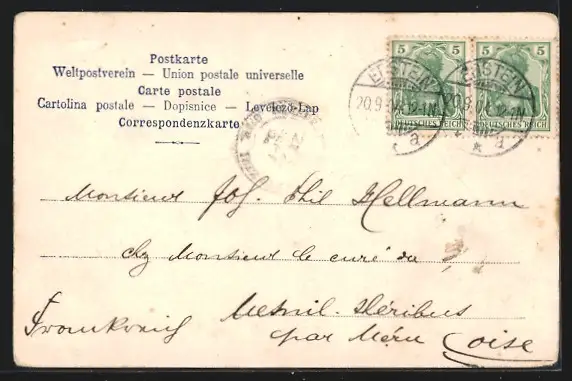 Postkarte
Weltpostverein — Union postale universelle
Carte postale
Cartolina postale — Dopisnice — Levelező-Lap
Correspondenzkarte
5 5 5 5
ERSTEIN ERSTEIN
20.9.04.12-1N. 20.9.04.12-1N.
DEUTSCHES REICH DEUTSCHES REICH
* a * a
Monsieur Jos. Phil Hellmann
chez Monsieur le curé du
Mesnil-Théribus
par Méru Oise
Frankreich